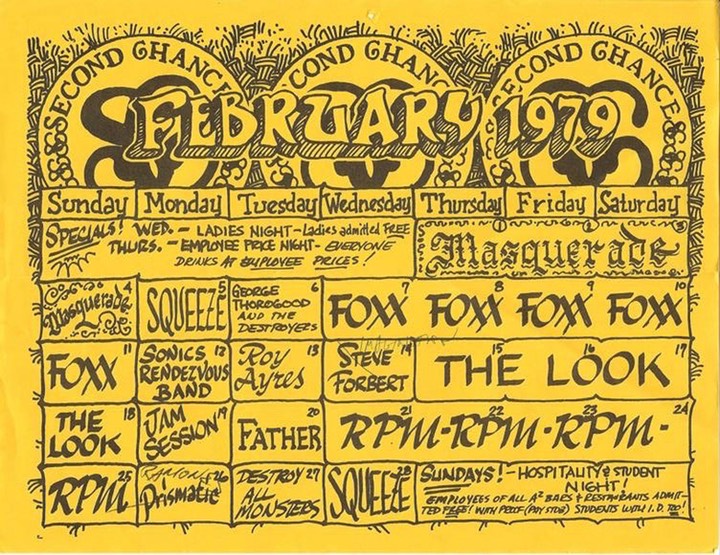 SECOND CHANCE COND CHAN ECOND CHANCE
FEBRUARY 1979
Sunday Monday Tuesday Wednesday Thursday Friday Saturday
SPECIALS! WED. - LADIES NIGHT - Ladies admitted FREE
THURS. - EMPLOYEE PRICE NIGHT - EVERYONE
DRINKS AT EMPLOYEE PRICES!
Masquerade
Masquerade 4
SQUEEZE 5
GEORGE 6
THOROGOOD
AND THE
DESTROYERS
FOXX 7 FOXX 8 FOXX 9 FOXX 10
FOXX 11
SONICS 12
RENDEZVOUS
BAND
Roy 13
Ayres
STEVE 14
FORBERT
THE LOOK 15 16 17
THE 18
LOOK
JAM 19
SESSION
FATHER 20
RPM-RPM-RPM- 21 22 23 24
RPM 25
RAMONES 26
Prismatic
DESTROY 27
ALL
MONSTERS
SQUEEZE 28
SUNDAYS! - HOSPITALITY & STUDENT
NIGHT!
EMPLOYEES OF ALL A² BARS & RESTAURANTS ADMIT-
TED FREE! WITH PROOF (PAY STUB) STUDENTS WITH I.D. TOO!